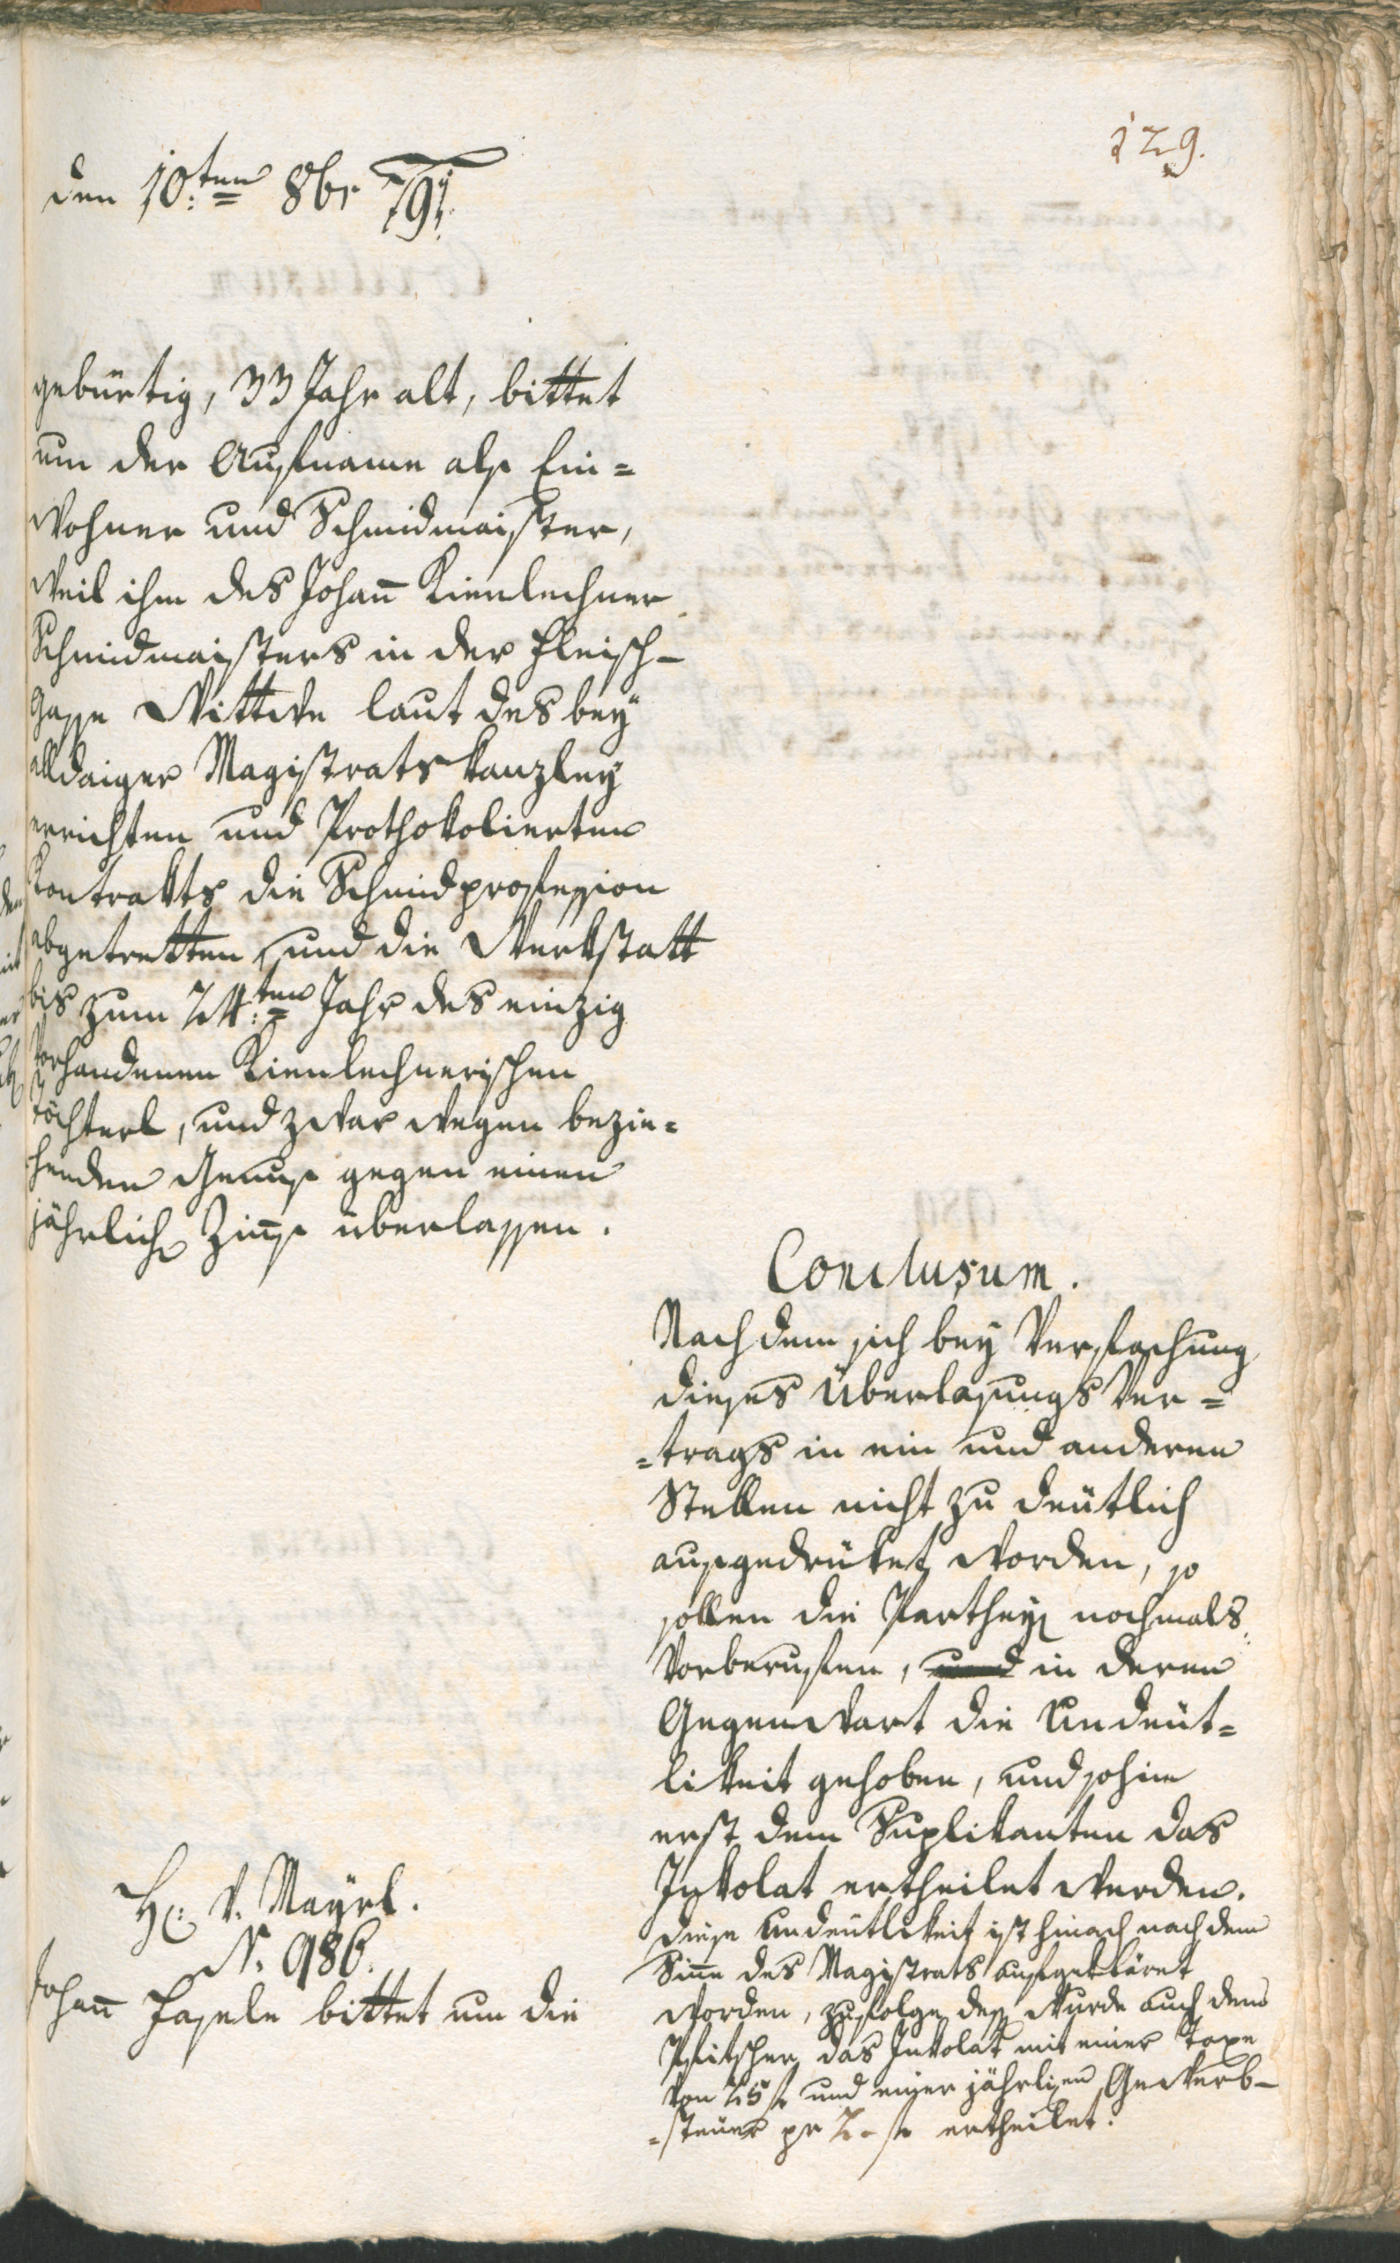 129.
den 10:ten 8br 791.
gebürtig, 33 Jahr alt, bittet
um der Aufname als Ein=
wohner und Schmidmaister,
weil ihm des Johan̅ Kienlechner
Schmidmaisters in der Fleisch-
gasse Wittwe laut des bey
alldaiger Magistratskanzley
errichten und Prothokolierten
Kontrakts die Schmidprofession
abgetretten, und die Werkstatt
bis zum 24:ten Jahr des einzig
vorhandenen Kienlechnerischen
Töchterl, und zwar wegen bezie=
henden Genuß gegen einen
jährlich Zinß überlassen.
Conclusum.
Nachdem sich bey Verfachung
dieses Überlasungs Ver=
=trags in ein und anderen
Stellen nicht zu deutlich
ausgedrüket worden, so
sollen die Parthey nochmals
vorberufen, und in deren
Gegenwart die Undeut=
likeit gehoben, und sohin
erst dem Suplikanten das
Inkolat ertheilet werden.
diese Undeutlikeit ist hinach nach dem
Sinne des Magistrats aufgekläret
worden, zufolge deß wurde auch dem
Pfitscher das Inkolat mit einer Taxe
von 25 f und einer jährlichen Gewerb-
=steuer pr 2 - f ertheilet.
H: v. Mayrl.
N. 986.
Johan̅ Fasele bittet um die